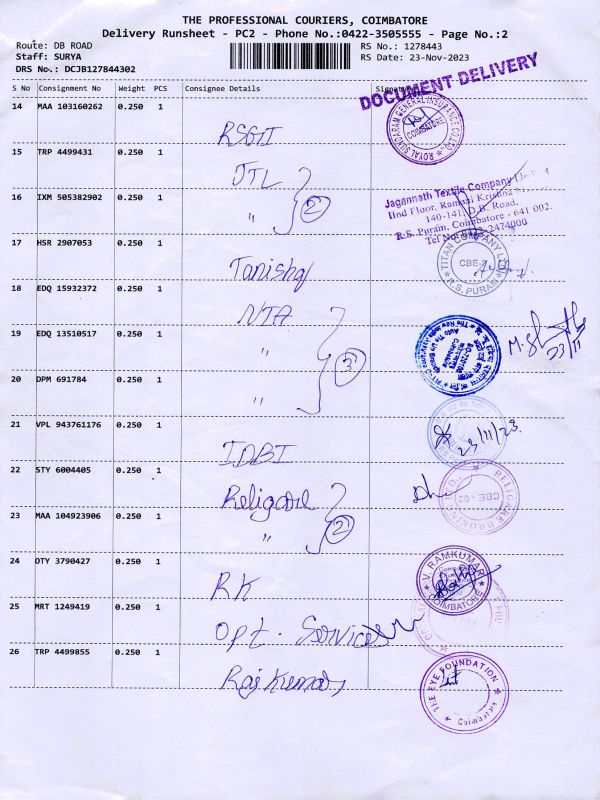 THE PROFESSIONAL COURIERS, COIMBATORE
Delivery Runsheet - PC2 - Phone No.:0422-3505555 - Page No.:2
Route: DB ROAD
RS No.: 1278443
Staff: SURYA
RS Date: 23-Nov-2023
DRS No.: DCJB127844302
DOCUMENT DELIVERY
S No Consignment No Weight PCS Consignee Details Signature
14 MAA 103160262 0.250 1
RSGII
ROYAL SUNDARAM GENERAL INSURANCE CO.LTD.
COIMBATORE
15 TRP 4499431 0.250 1
JTL
16 IXM 505382902 0.250 1
" 2
Jagannath Textile Company
IInd Floor, Ramani Krishna
140-141, D.B. Road,
R.S. Puram, Coimbatore - 641 002.
Tel No. 0422-2474000
17 HSR 2907053 0.250 1
Tanishq
TITAN COMPANY LTD
CBE-2
R.S. PURAM
18 EDQ 15932372 0.250 1
NIA
19 EDQ 13510517 0.250 1
" 3
M.
23/11
20 DPM 691784 0.250 1
"
21 VPL 943761176 0.250 1
IDBI
23/11/23.
22 STY 6004405 0.250 1
Religare
RELIGARE BROKING
CBE - 02
23 MAA 104923906 0.250 1
2
24 OTY 3790427 0.250 1
RK
V. RAMKUMAR
COIMBATORE
25 MRT 1249419 0.250 1
Opt. Services
26 TRP 4499855 0.250 1
Rajkumar
THE EYE FOUNDATION
Coimbatore